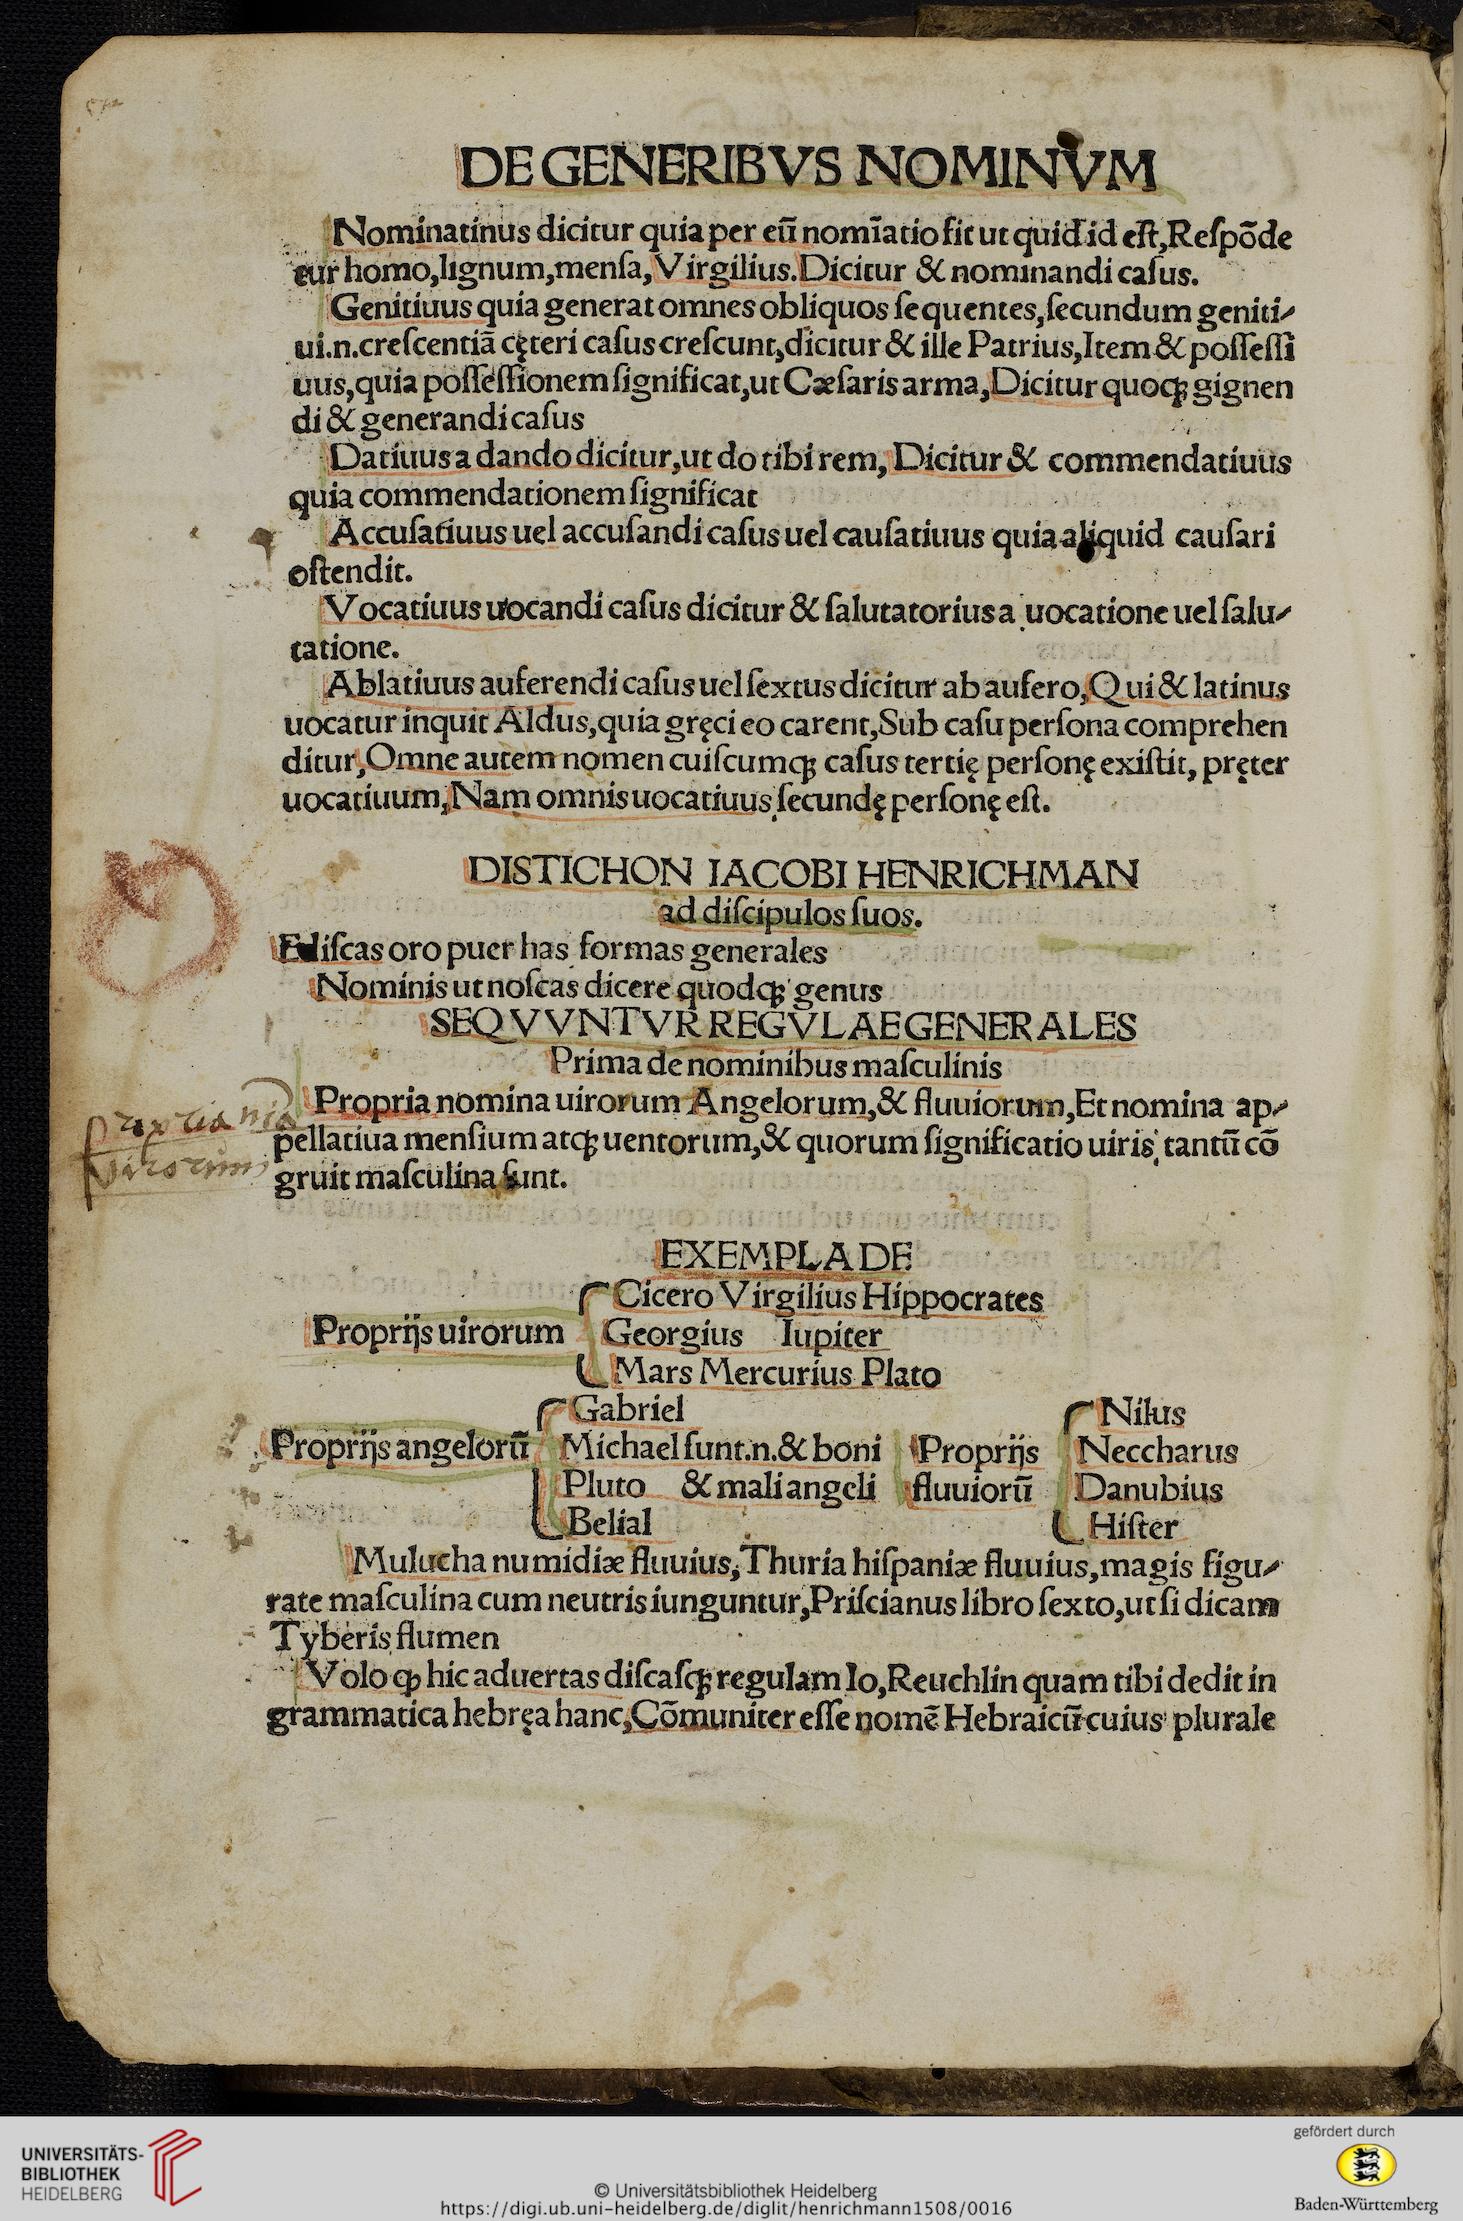 DE GENERIBVS NOMINVM
Nominatinus dicitur quia per eũ nomĩatio fit ut quid id eſt, Reſpõde
tur homo, lignum, menſa, Virgilius. Dicitur & nominandi caſus.
Genitiuus quia generat omnes obliquos ſequentes, ſecundum geniti-
ui.n.creſcentiã cęteri caſus creſcunt, dicitur & ille Patrius, Item & poſſeſſi
uus, quia poſſeſſionem ſignificat, ut Cæſaris arma, Dicitur quoqꝫ gignen
di & generandi caſus
Datiuus a dando dicitur, ut do tibi rem, Dicitur & commendatiuus
quia commendationem ſignificat
Accuſatiuus uel accuſandi caſus uel cauſatiuus quia aliquid cauſari
oſtendit.
Vocatiuus uocandi caſus dicitur & ſalutatorius a uocatione uel ſalu-
tatione.
Ablatiuus auferendi caſus uel ſextus dicitur ab aufero, Qui & latinus
uocatur inquit Aldus, quia gręci eo carent, Sub caſu perſona comprehen
ditur, Omne autem nomen cuiſcumqꝫ caſus tertię perſonę exiſtit, pręter
uocatiuum, Nam omnis uocatiuus ſecundę perſonę eſt.
DISTICHON IACOBI HENRICHMAN
ad diſcipulos ſuos.
Ediſcas oro puer has formas generales
Nominis ut noſcas dicere quodqꝫ genus
SEQVVNTVR REGVLAE GENERALES
Prima de nominibus maſculinis
Propria nomina uirorum Angelorum, & fluuiorum, Et nomina ap-
propria nia
pellatiua menſium atqꝫ uentorum, & quorum ſignificatio uiris tantũ cõ
virorum
gruit maſculina ſunt.
EXEMPLA DE
Proprijs uirorum
Cicero Virgilius Hippocrates
Georgius Iupiter
Mars Mercurius Plato
Proprijs angelorũ
Gabriel
Michael ſunt.n.& boni
Pluto & mali angeli
Belial
Proprijs
fluuiorũ
Nilus
Neccharus
Danubius
Hiſter
Mulucha numidiæ fluuius, Thuria hiſpaniæ fluuius, magis figu-
rate maſculina cum neutris iunguntur, Priſcianus libro ſexto, ut ſi dicam
Tyberis flumen
Volo ꝙ hic aduertas diſcaſqꝫ regulam Io, Reuchlin quam tibi dedit in
grammatica hebręa hanc, Cõmuniter eſſe nomẽ Hebraicũ cuius plurale
UNIVERSITÄTS-
BIBLIOTHEK
HEIDELBERG
© Universitätsbibliothek Heidelberg
https://digi.ub.uni-heidelberg.de/diglit/henrichmann1508/0016
gefördert durch
Baden-Württemberg